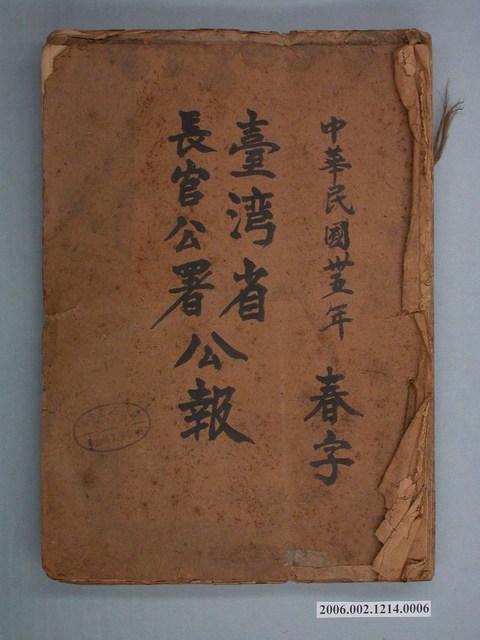 中華民國卅五年 春字
臺湾省
長官公署公報
2006.002.1214.0006